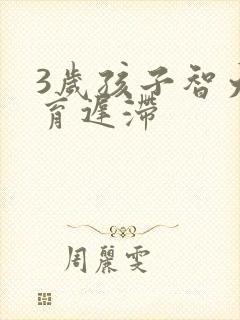 3歲孩子智力
育遲滯
周麗雯